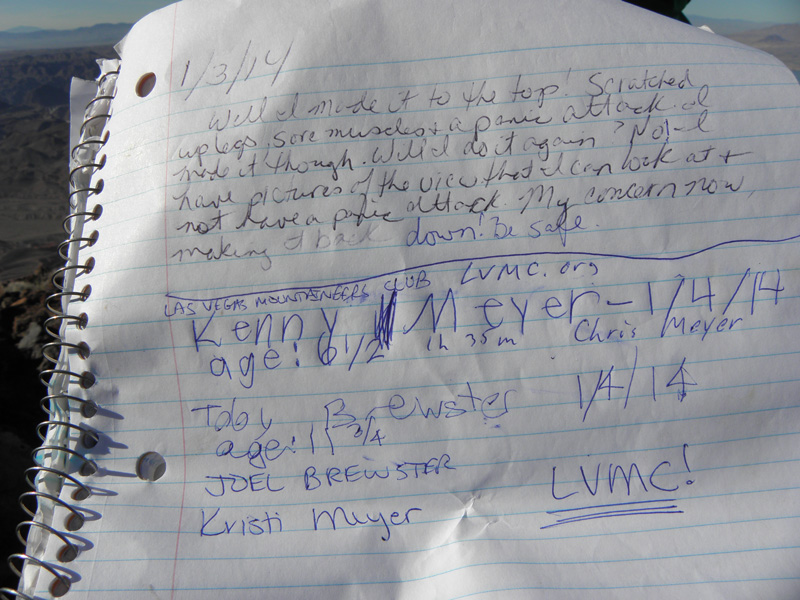 1/3/14
Well I made it to the top! Scratched
up legs, sore muscles + a panic attack. I
made it though. Will I do it again? No! - I
have pictures of the view that I can look at +
not have a panic attack. My concern now,
making it back down! Be safe.
LAS VEGAS MOUNTAINEERS CLUB LVMC.org
Kenny Meyer - 1/4/14
age: 6 1/2 1h 35m Chris Meyer
Toby Brewster 1/4/14
age: 11 3/4
JOEL BREWSTER
Kristi Meyer LVMC!